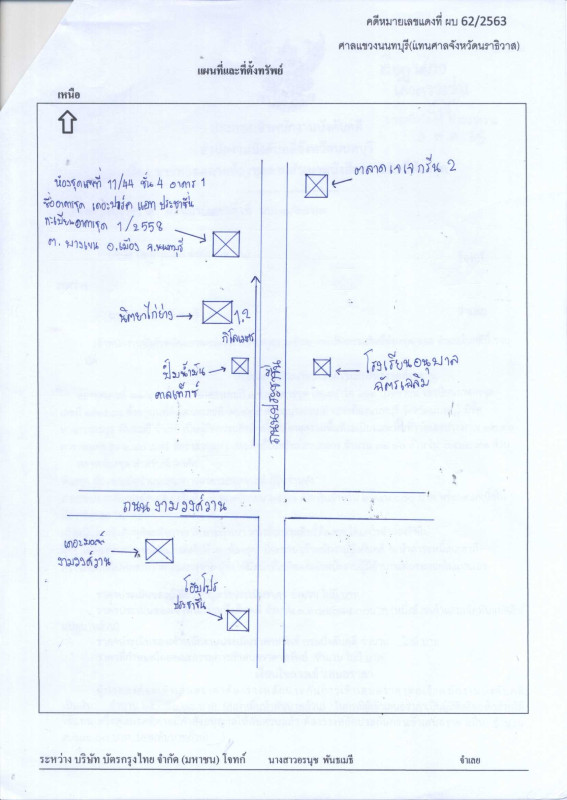 คดีหมายเลขแดงที่ ผบ 62/2563
ศาลแขวงนนทบุรี(แทนศาลจังหวัดนราธิวาส)
แผนที่และที่ตั้งทรัพย์
เหนือ
ห้องชุดเลขที่ 11/44 ชั้น 4 อาคาร 1
ชื่ออาคารชุด เดอะปาร์ค แอท ประชาชื่น
ทะเบียนอาคารชุด 1/2558
ต. บางเขน อ.เมือง จ.นนทบุรี
ตลาดเจเจกรีน 2
พิทยาไก่ย่าง
1.2
กิโลเมตร
ปั๊มน้ำมัน
คาลเท็กซ์
ถนนประชาชื่น
โรงเรียนอนุบาล
ฉัตรเฉลิม
ถนนงามวงศ์วาน
เดอะมอลล์
งามวงศ์วาน
โฮมโปร
ประชาชื่น
ระหว่าง บริษัท บัตรกรุงไทย จำกัด (มหาชน) โจทก์ นางสาวอรนุช พันธเมธี จำเลย